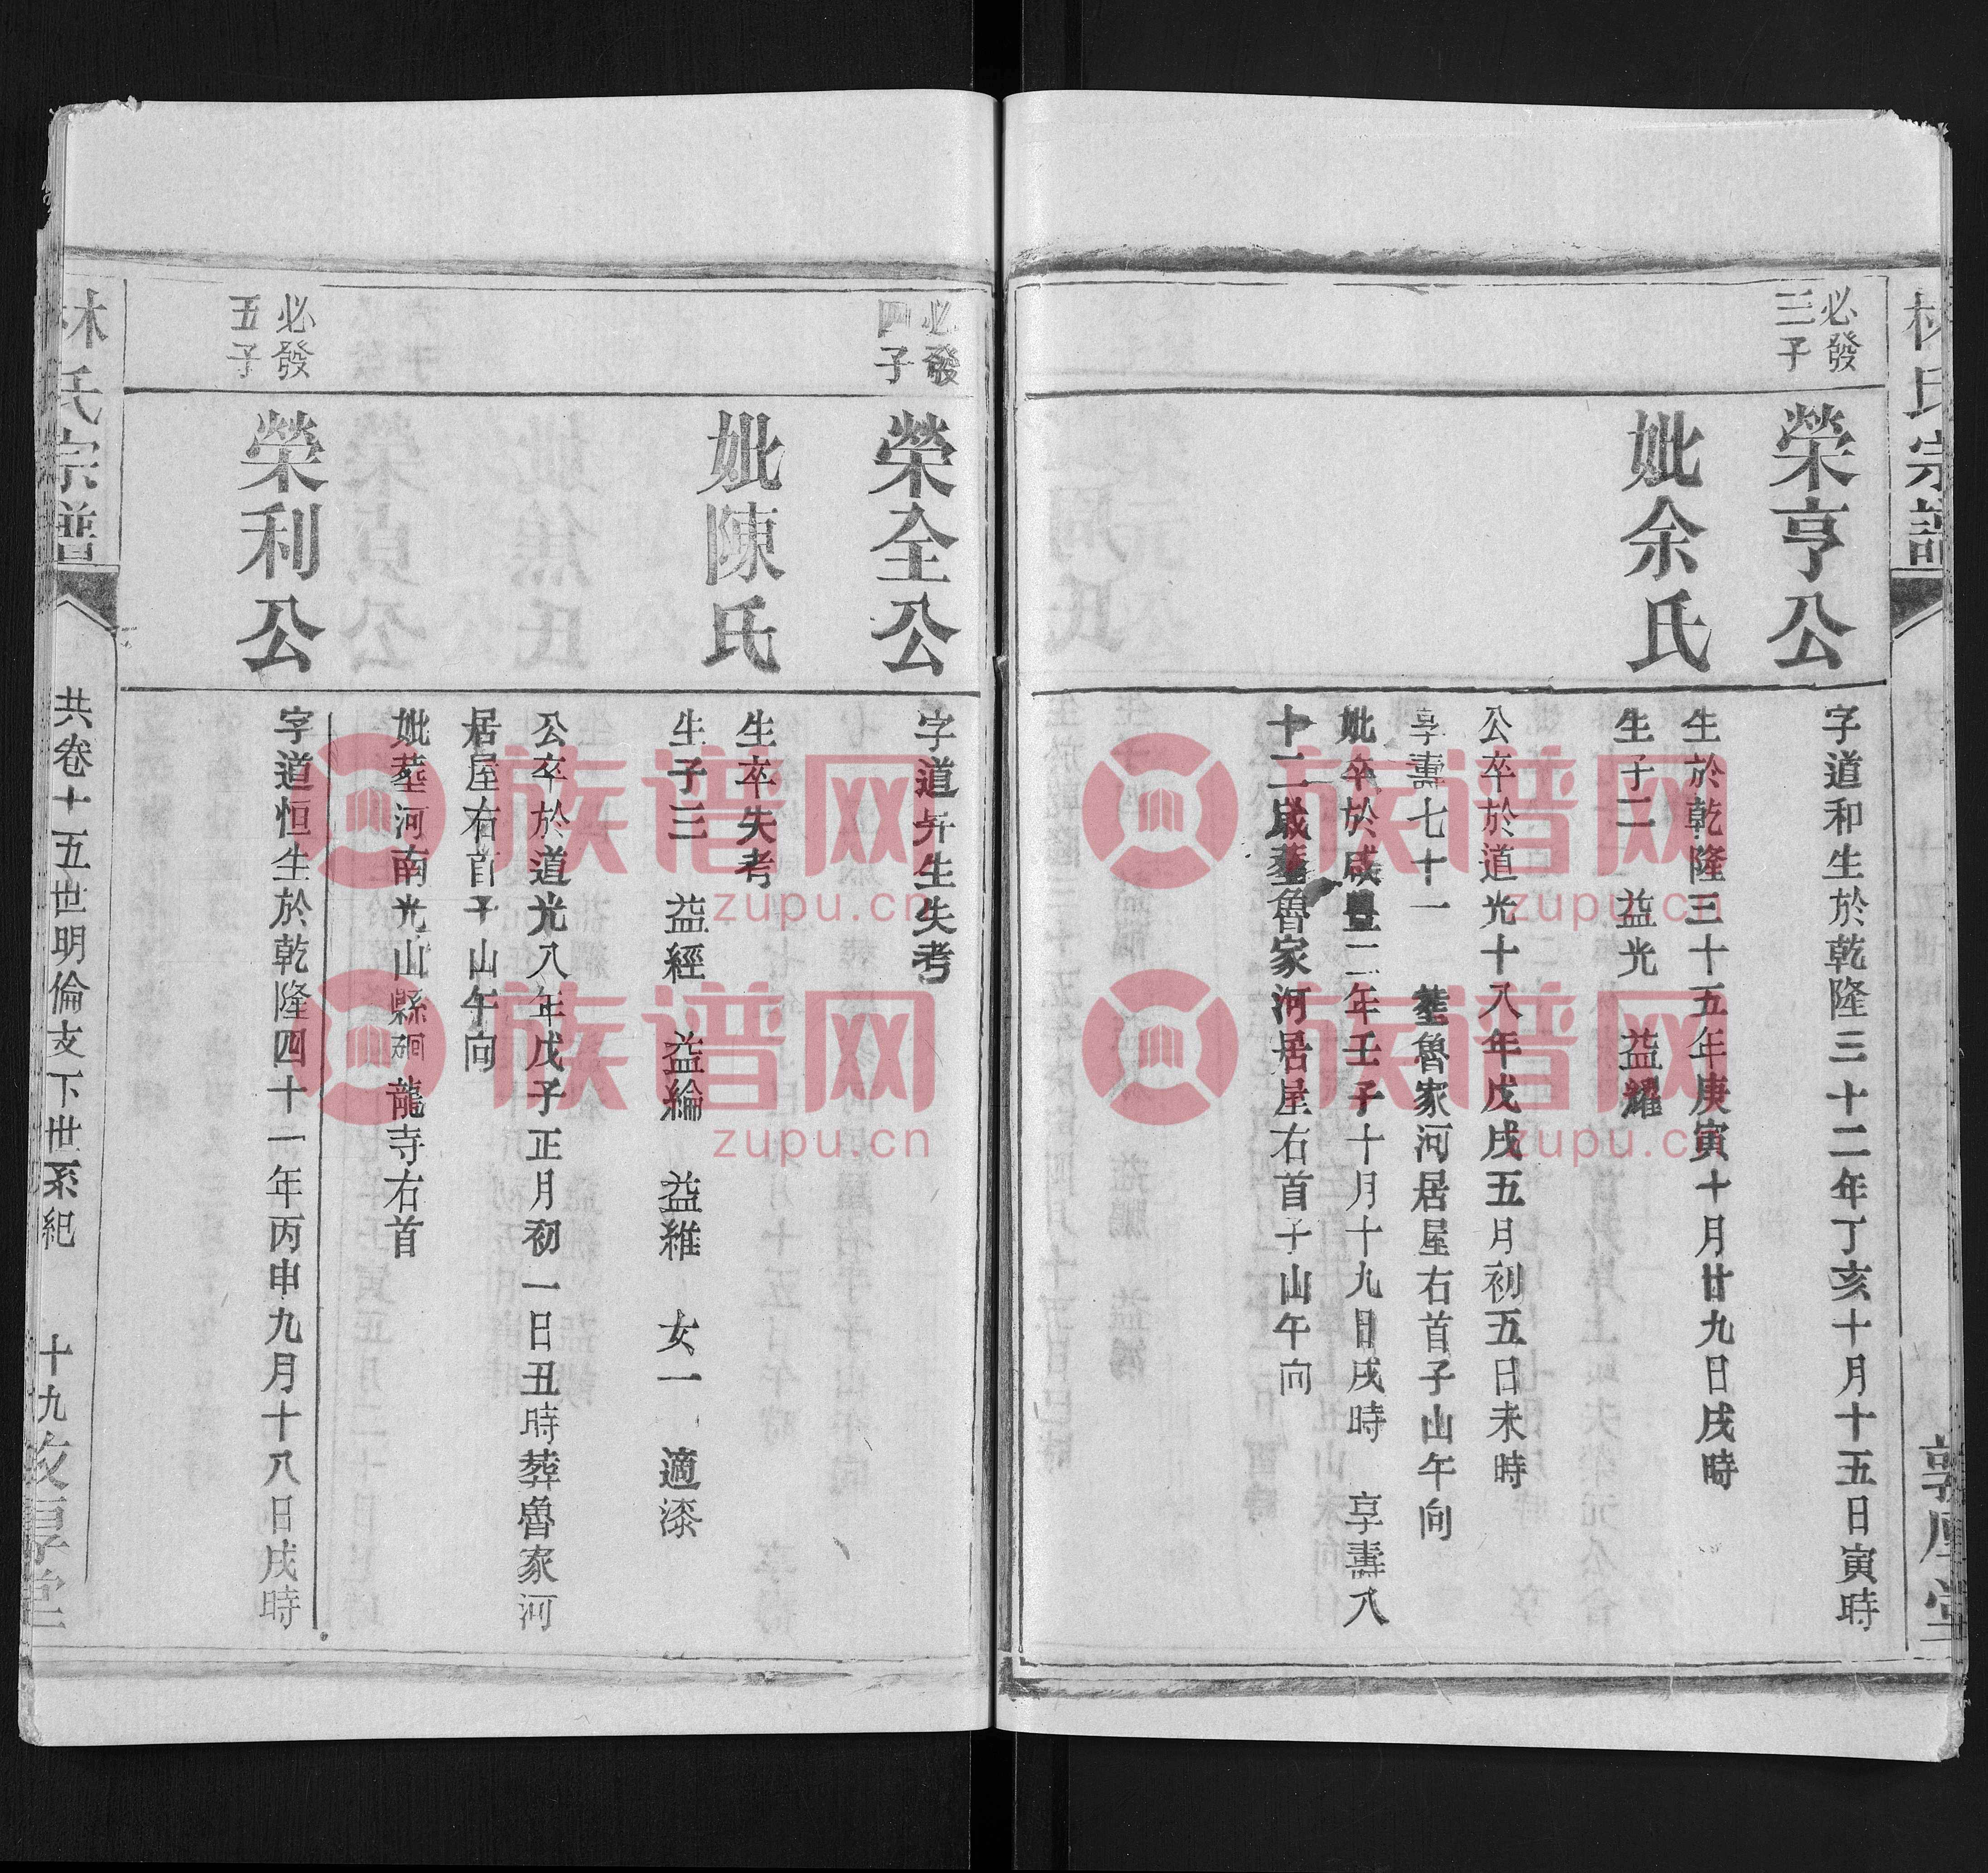 林氏宗譜
敦厚堂
必發
三子
榮亨公
字道和生於乾隆三十二年丁亥十月十五日寅時
妣余氏
生於乾隆三十五年庚寅十月廿九日戌時
生子二 益光 益耀
公卒於道光十八年戊戌五月初五日未時
享壽七十一 塟魯家河居屋右首子山午向
妣卒於咸豐二年壬子十月十九日戌時 享壽八
十二歲塟魯家河居屋右首子山午向
必發
四子
榮全公
字道升生失考
妣陳氏
生卒失考
生子三 益經 益綸 益維 女一 適漆
公卒於道光八年戊子正月初一日丑時葬魯家河
居屋右首子山午向
妣塟河南光山縣 龍寺右首
必發
五子
榮利公
字道恒生於乾隆四十一年丙申九月十八日戌時
林氏宗譜
共卷十五世明倫支下世系紀
十九
敦厚堂
族谱网
zupu.cn
族谱网
zupu.cn
族谱网
zupu.cn
族谱网
zupu.cn